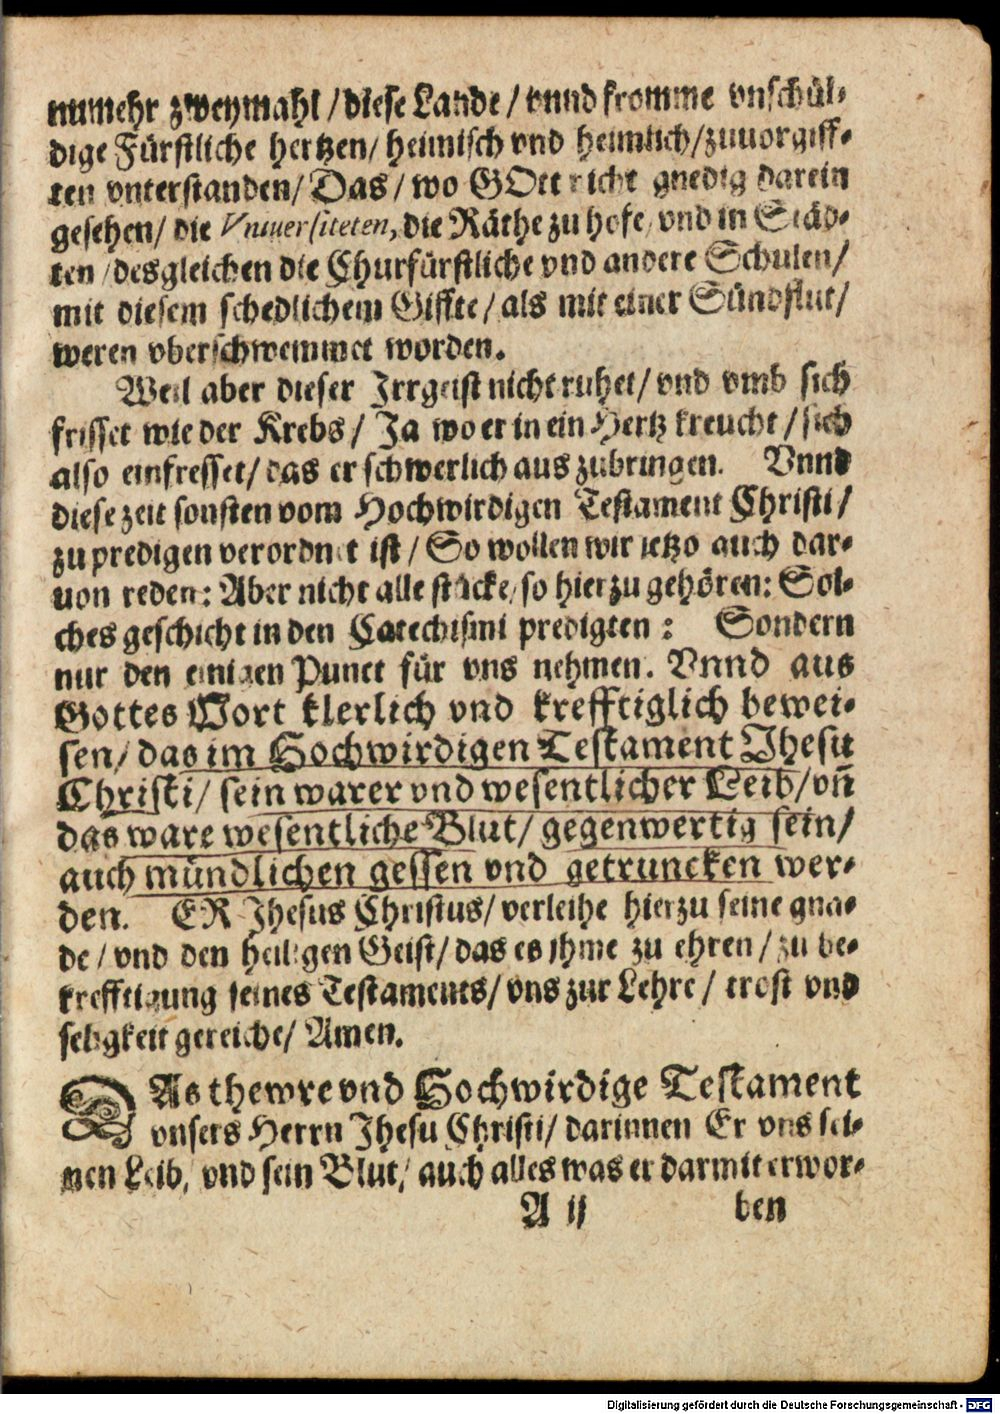 nunmehr zweymahl / diese Lande / vnnd fromme vnschül-
dige Fürstliche hertzen / heimisch vnd heimlich / zuuorgiff-
ten vnterstanden / Das / wo GOtt nicht gnedig darein
gesehen / die Vniuersiteten, die Räthe zu hofe / vnd in Städ-
ten / desgleichen die Churfürstliche vnd andere Schulen /
mit diesem schedlichem Giffte / als mit einer Sündflut /
weren vberschwemmet worden.
Weil aber dieser Irrgeist nicht ruhet / vnd vmb sich
frisset wie der Krebs / Ja wo er in ein Hertz kreucht / sich
also einfresset / das er schwerlich aus zubringen. Vnnd
diese zeit sonsten vom Hochwirdigen Testament Christi /
zu predigen verordnet ist / So wollen wir jetzo auch dar-
uon reden: Aber nicht alle stücke / so hierzu gehören: Sol-
ches geschicht in den Catechismi predigten: Sondern
nur den einigen Punct für vns nehmen. Vnnd aus
Gottes Wort klerlich vnd krefftiglich bewei-
sen / das im Hochwirdigen Testament Jhesu
Christi / sein warer vnd wesentlicher Leib / vn̄
das ware wesentliche Blut / gegenwertig sein /
auch mündlichen gessen vnd getruncken wer-
den. ER Jhesus Christus / verleihe hierzu seine gna-
de / vnd den heiligen Geist / das es jhme zu ehren / zu be-
krefftigung seines Testaments / vns zur Lehre / trost vnd
seligkeit gereiche / Amen.
DAs thewre vnd Hochwirdige Testament
vnsers Herrn Jhesu Christi / darinnen Er vns sei-
nen Leib / vnd sein Blut / auch alles was er darmit erwor-
A ij ben
Digitalisierung gefördert durch die Deutsche Forschungsgemeinschaft - DFG